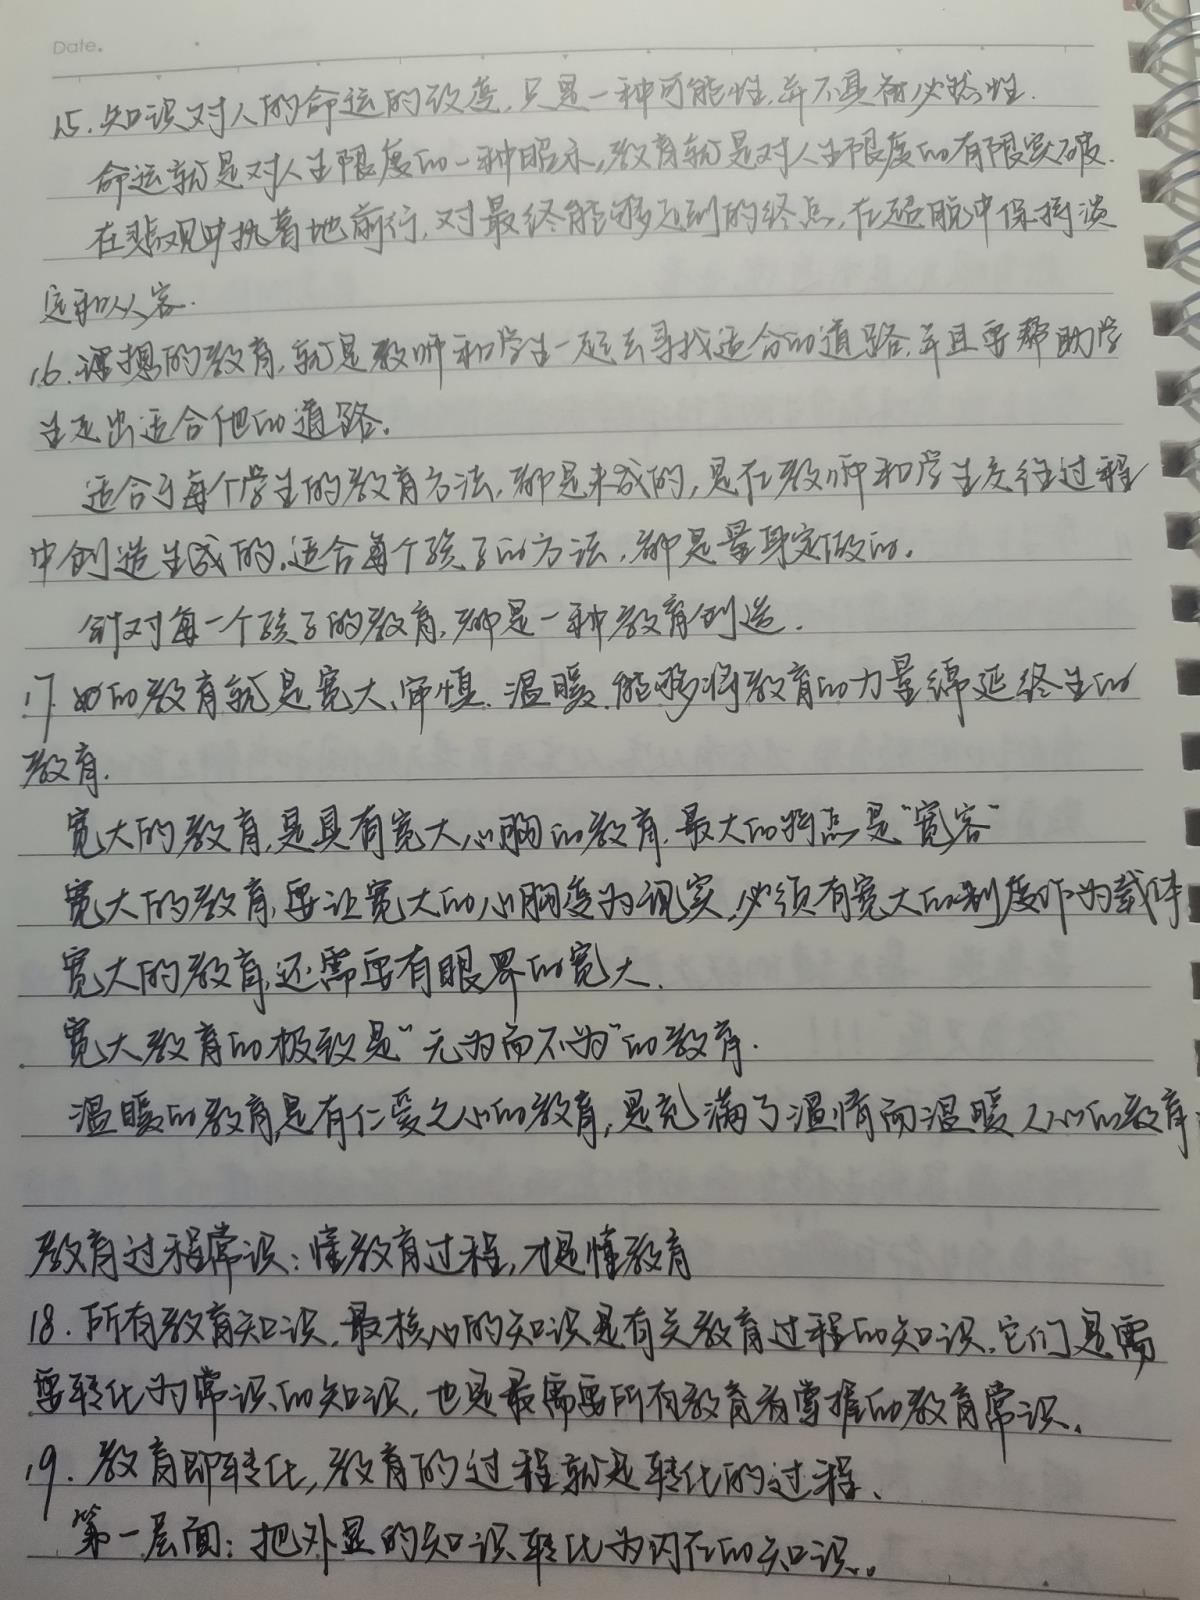 Date.
15. 知识对人的命运的改变,只是一种可能性,并不具备必然性.
命运就是对人生限度的一种昭示,教育就是对人生限度的有限突破.
在悲观中执着地前行,对最终能够达到的终点,在超脱中保持淡
定和从容.
16. 理想的教育,就是教师和学生一起去寻找适合的道路,并且要帮助学
生走出适合他的道路.
适合于每个学生的教育方法,都是未成的,是在教师和学生交往过程
中创造生成的.适合每个孩子的方法,都是量身定做的.
针对每一个孩子的教育,都是一种教育创造.
17. 好的教育就是宽大、审慎、温暖、能够将教育的力量绵延终生的
教育.
宽大的教育,是具有宽大心胸的教育.最大的特点是“宽容”
宽大的教育,要让宽大的心胸变为现实,必须有宽大的制度作为载体
宽大的教育,还需要有眼界的宽大.
宽大教育的极致是“无为而不为”的教育.
温暖的教育,是有仁爱之心的教育,是充满了温情而温暖人心的教育
教育过程常识:懂教育过程,才是懂教育
18. 所有教育知识,最核心的知识是有关教育过程的知识.它们是需
要转化为常识的知识,也是最需要所有教育者掌握的教育常识.
19. 教育即转化,教育的过程就是转化的过程.
第一层面:把外显的知识转化为内在的知识.